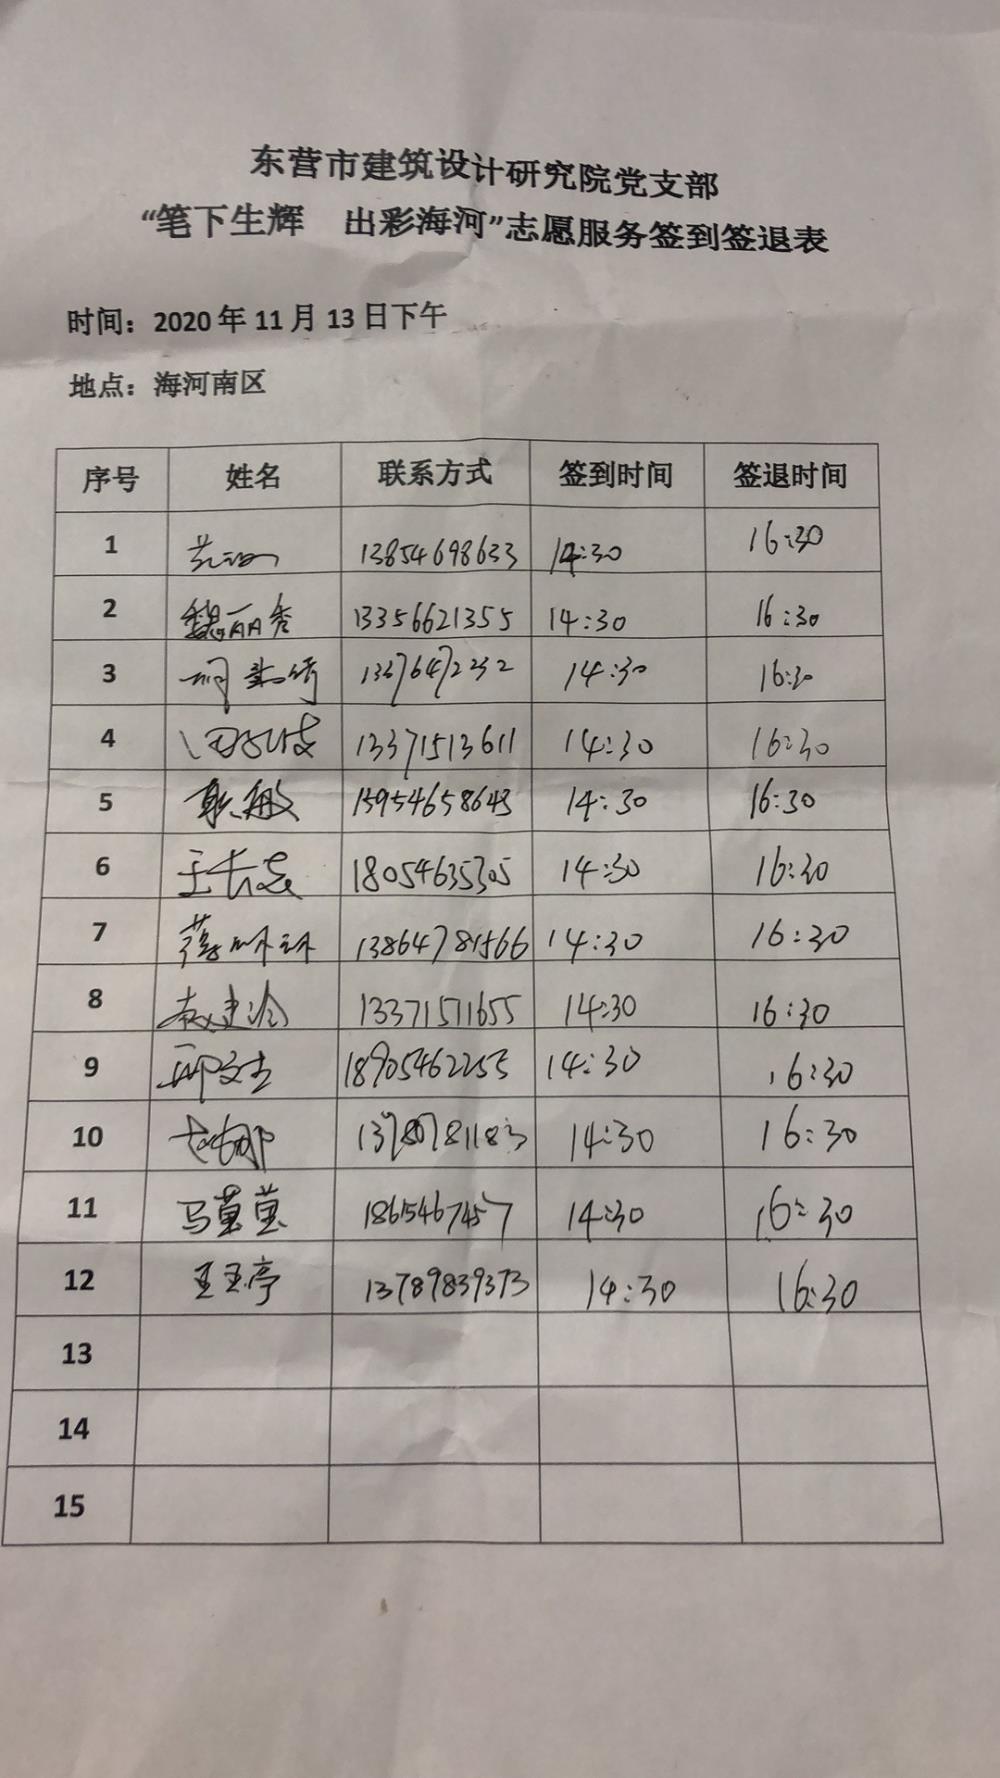 东营市建筑设计研究院党支部
“笔下生辉 出彩海河”志愿服务签到签退表
时间：2020年11月13日下午
地点：海河南区
序号 姓名 联系方式 签到时间 签退时间
1 13854698633 14:30 16:30
2 魏丽秀 13356621355 14:30 16:30
3 13676472232 14:30 16:30
4 13371513611 14:30 16:30
5 耿敏 13954658643 14:30 16:30
6 王长志 18054635305 14:30 16:30
7 蒋环环 13864781566 14:30 16:30
8 13371571655 14:30 16:30
9 18905462255 14:30 16:30
10 14:30 16:30
11 马莹莹 1865467457 14:30 16:30
12 王玉亭 13789839373 14:30 16:30
13
14
15